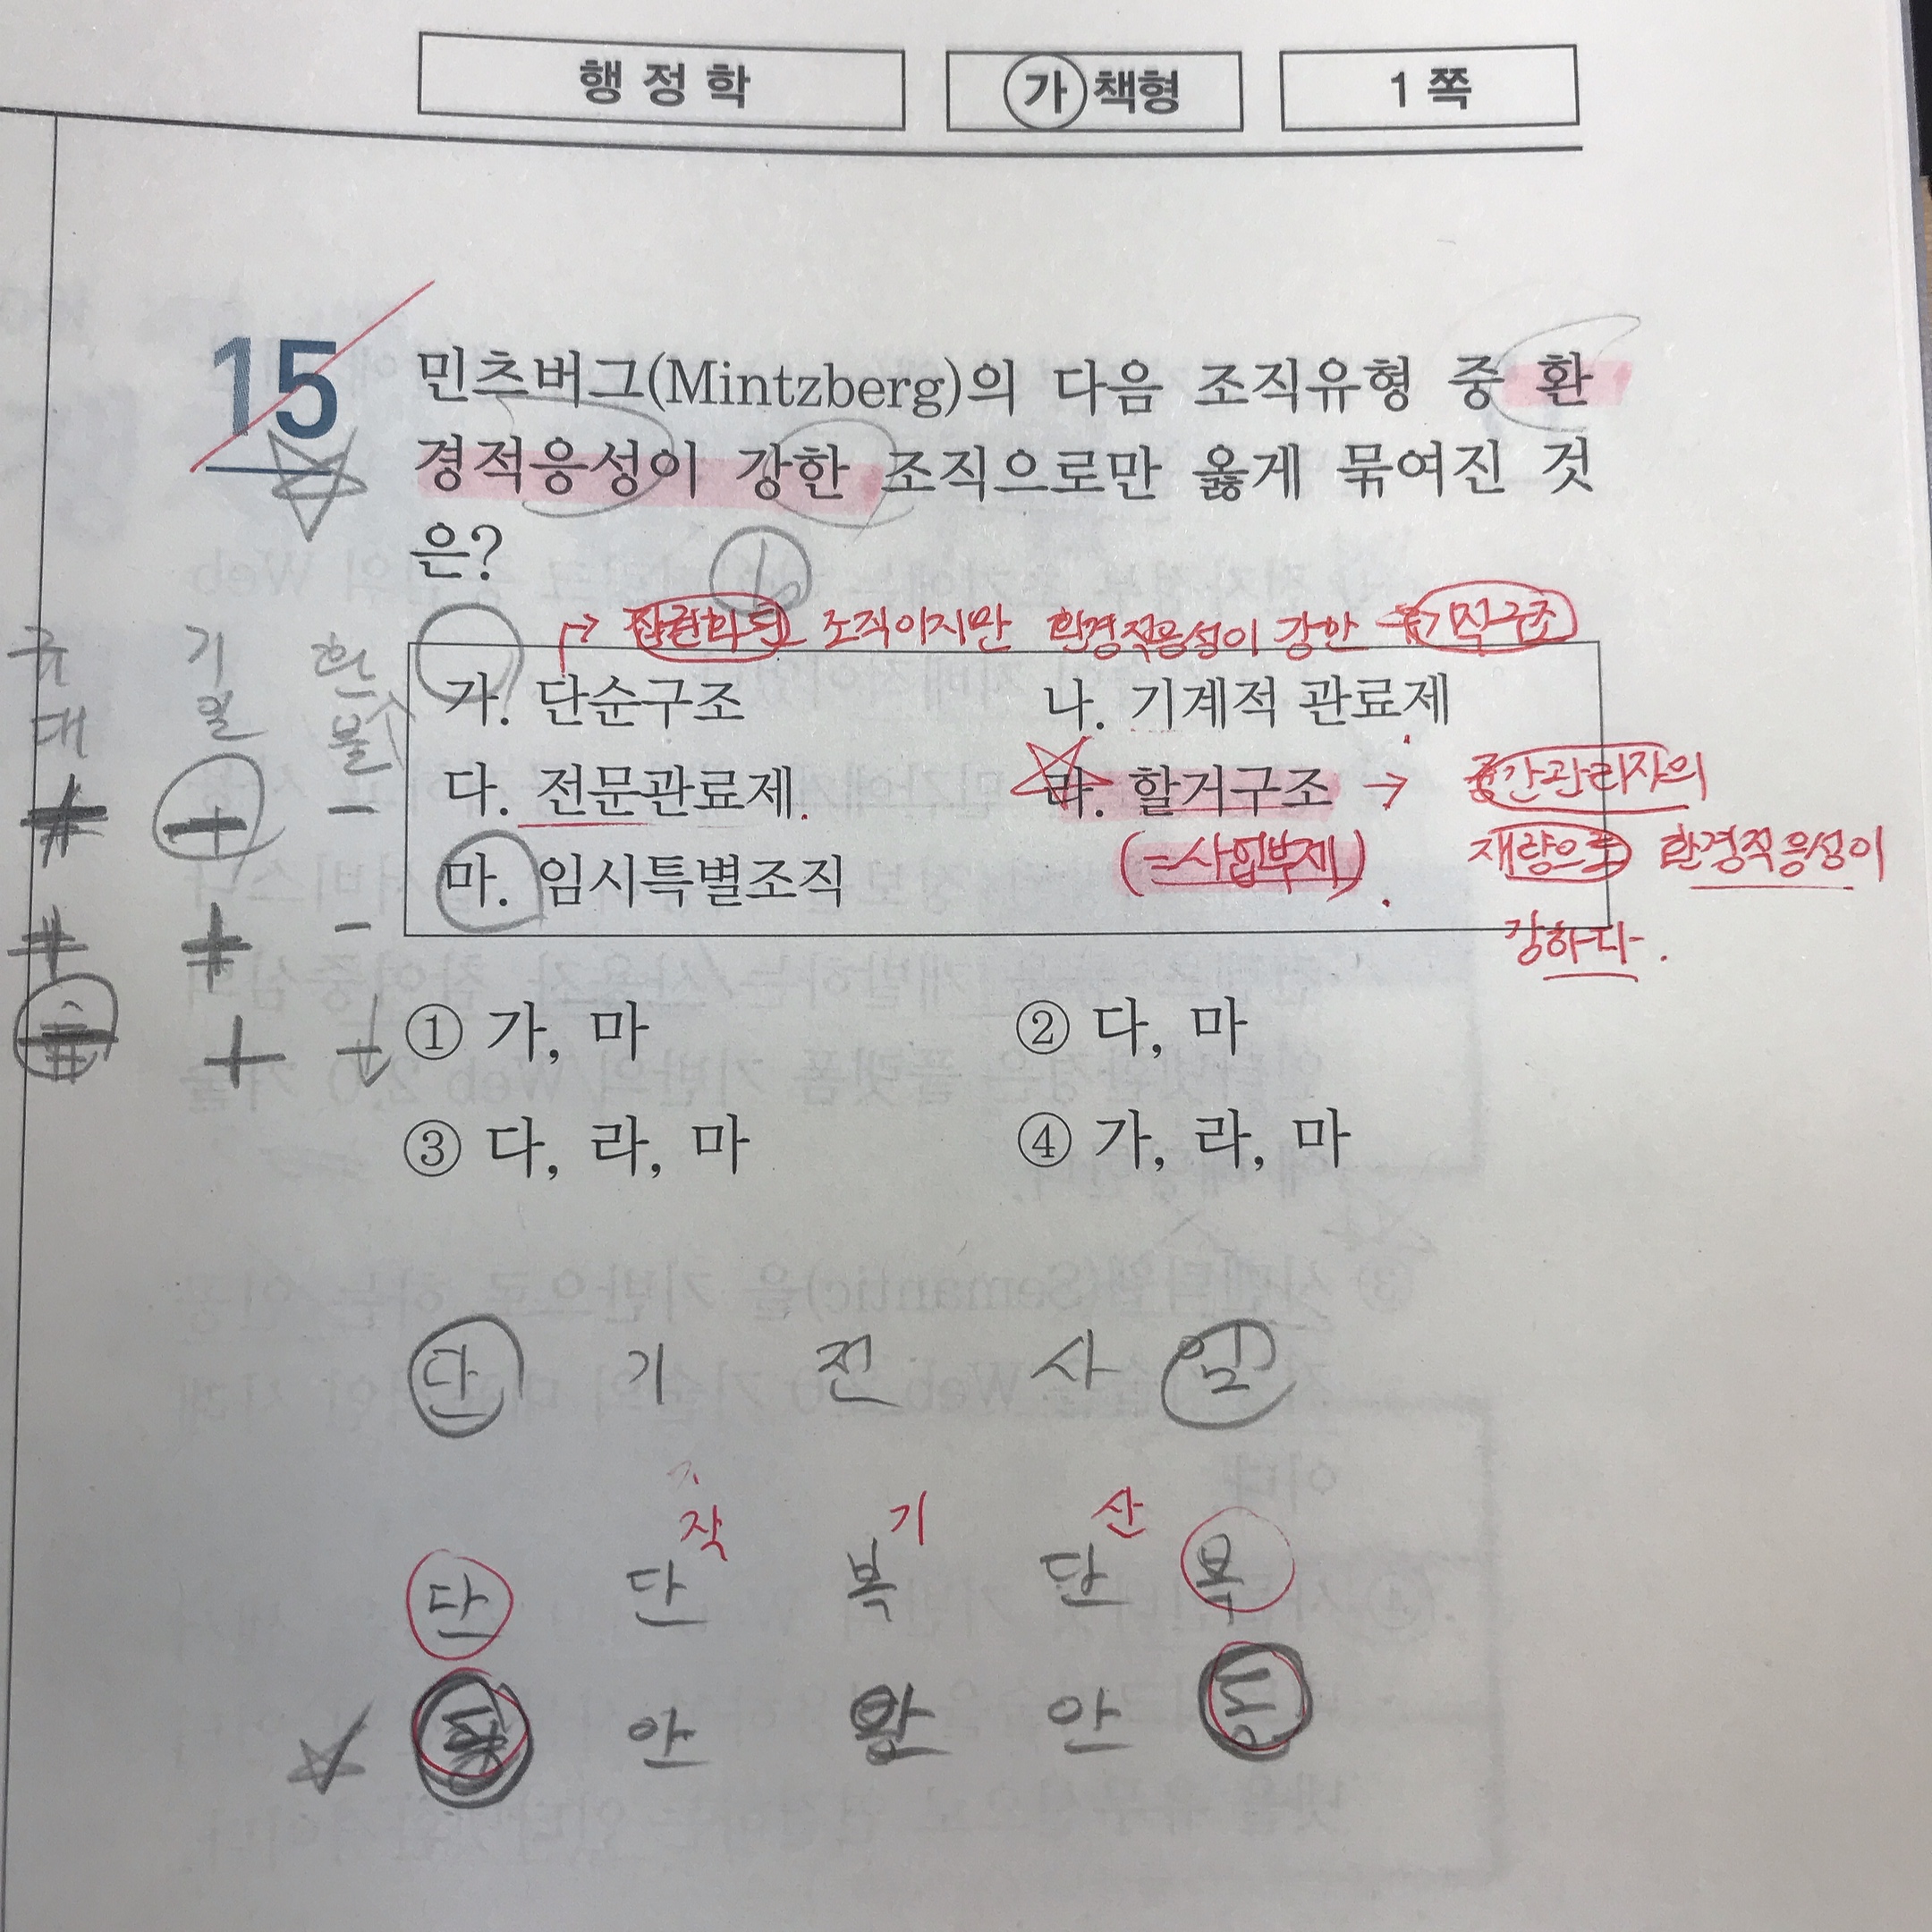 행 정 학 가 책형 1 쪽
15 민츠버그(Mintzberg)의 다음 조직유형 중 환
경적응성이 강한 조직으로만 옳게 묶여진 것
은?
→ 조직이지만 환경적응성이 강한 유기적구조
가. 단순구조 나. 기계적 관료제
다. 전문관료제 라. 할거구조 → 중간관리자의
(=사업부제) 재량으로 환경적응성이
마. 임시특별조직
강하다.
① 가, 마 ② 다, 마
③ 다, 라, 마 ④ 가, 라, 마
구 기 환
대 일 불
+ -
-
+
단 기 전 사 임
작 기 산
단 단 복 단 복
동 안 안 안 동